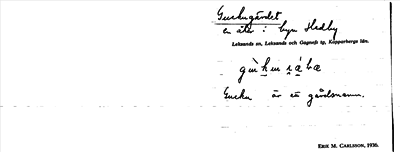 Guckugärdet
en åker i byn Hedby
Leksands sn, Leksands och Gagnefs tg, Kopparbergs län.
Gucku är ett gårdsnamn.
ERIK M. CARLSSON, 1930.